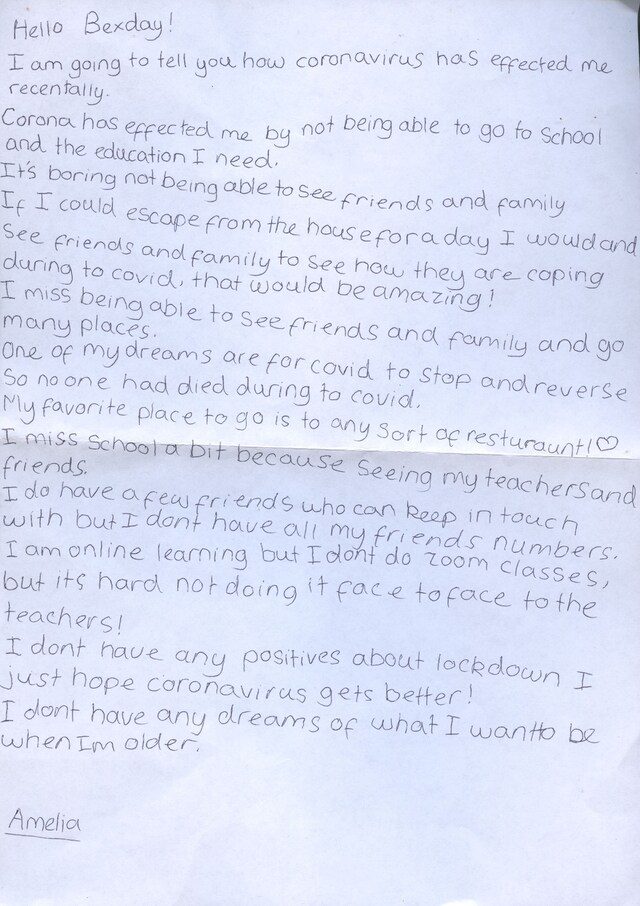 Hello Bexday!
I am going to tell you how coronavirus has effected me
recentally.
Corona has effected me by not being able to go to school
and the education I need.
It's boring not being able to see friends and family
If I could escape from the house for a day I would and
see friends and family to see how they are coping
during to covid, that would be amazing!
I miss being able to see friends and family and go
many places.
One of my dreams are for covid to stop and reverse
So no one had died during to covid.
My favorite place to go is to any sort of resturaunt!♡
I miss school a bit because seeing my teachers and
friends.
I do have a few friends who can keep in touch
with but I dont have all my friends numbers.
I am online learning but I dont do zoom classes,
but its hard not doing it face to face to the
teachers!
I dont have any positives about lockdown I
just hope coronavirus gets better!
I dont have any dreams of what I want to be
when Im older.
Amelia